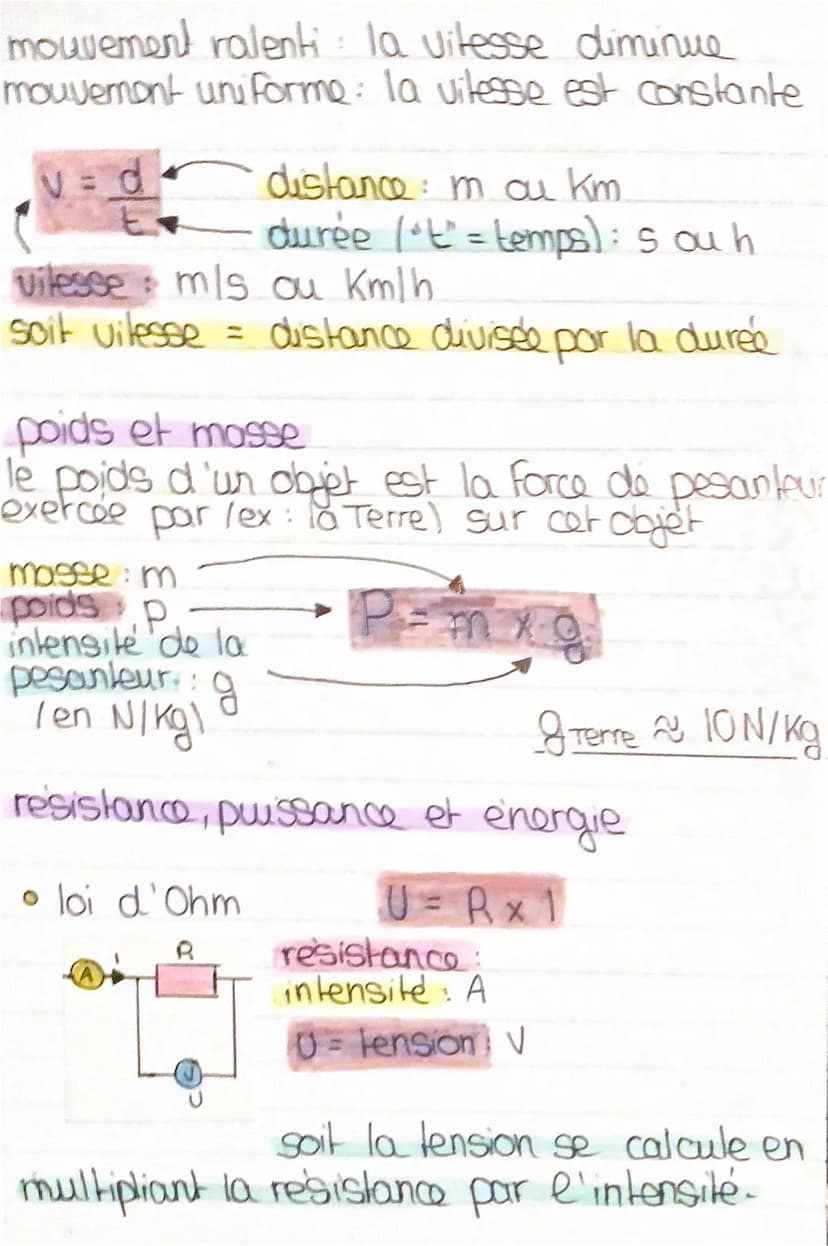 mouvement ralenti : la vitesse diminue
mouvement uniforme : la vitesse est constante
v = d/t
distance : m ou Km
durée ("t" = temps) : s ou h
vitesse : m/s ou Km/h
soit vitesse = distance divisée par la durée
poids et masse
le poids d'un objet est la force de pesanteur
exercée par (ex : la Terre) sur cet objet
masse : m
poids : P
P = m x g
intensité de la
pesanteur : g
(en N/Kg)
g Terre ≈ 10 N/Kg
résistance, puissance et énergie
• loi d'Ohm
U = R x I
A
i
R
V
U
résistance :
intensité : A
U = tension : V
soit la tension se calcule en
multipliant la résistance par l'intensité.